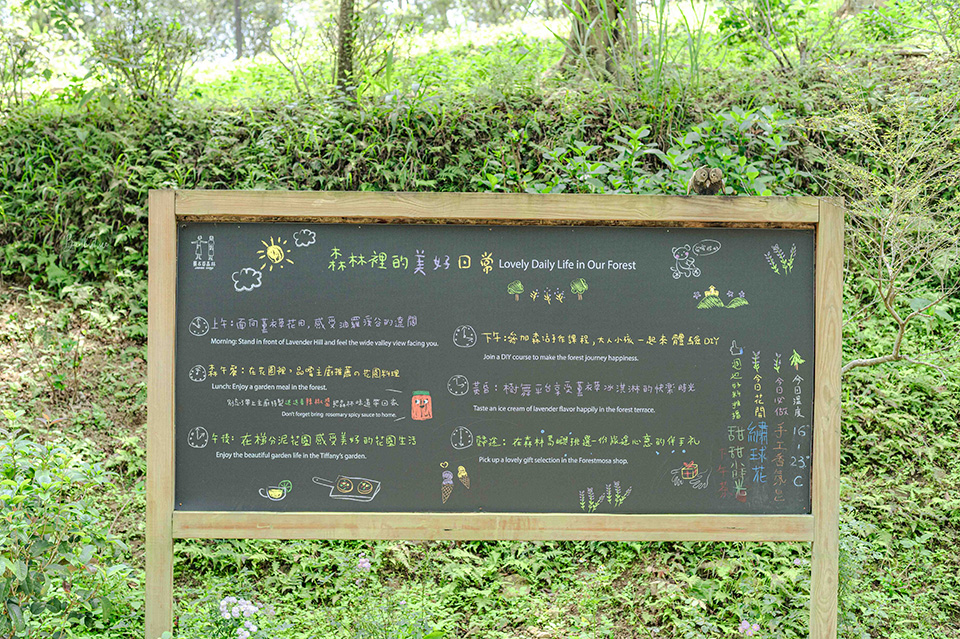 森林裡的美好日常 Lovely Daily Life in Our Forest
上午：面向薰衣草花田，感受油羅溪谷的遼闊
Morning: Stand in front of Lavender Hill and feel the wide valley view facing you.
森午餐：在花園裡，品嚐主廚推薦の花園料理
Lunch: Enjoy a garden meal in the forest.
別忘了帶上主廚特製迷迭香辣椒醬把森林味道帶回家
Don't forget bring rosemary spicy sauce to home.
午後：在梯分泥花園感受美好的花園生活
Enjoy the beautiful garden life in the Tiffany's garden.
下午：參加森活手作課程，大人小孩一起來體驗DIY
Join a DIY course to make the forest journey happiness.
黃昏：樹舞平台享受薰衣草冰淇淋的快樂時光
Taste an ice cream of lavender flavor happily in the forest terrace.
歸途：在森林島嶼挑選一份最適心意的伴手禮
Pick up a lovely gift selection in the Forestmosa shop.
今日溫度
16 | 23°C
今日必做
手工香
今日花開
繡球花
甜甜小